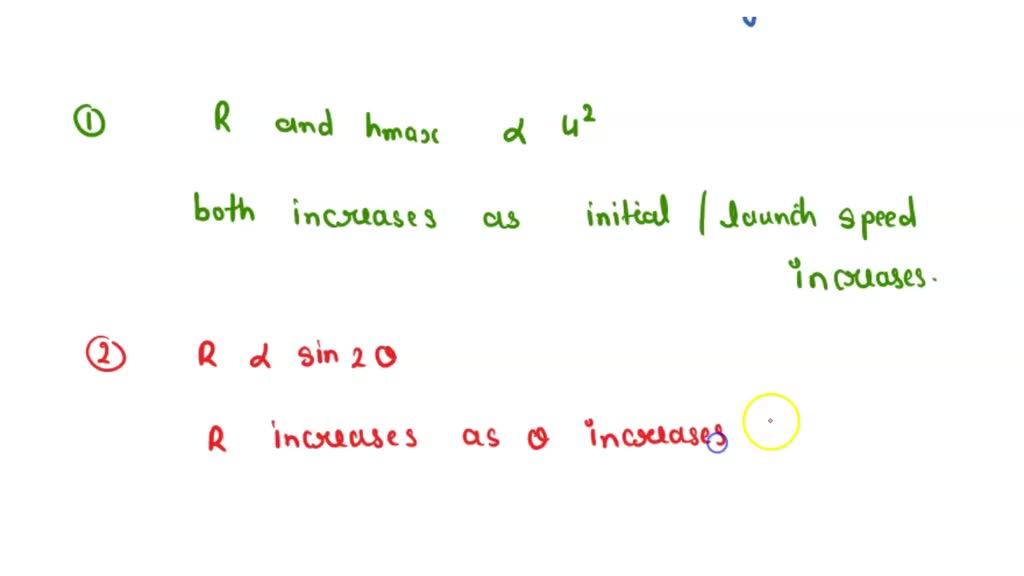 ① R and hmax α u²
both increases as initial / launch speed
increases.
② R α sin 2θ
R increases as θ increases